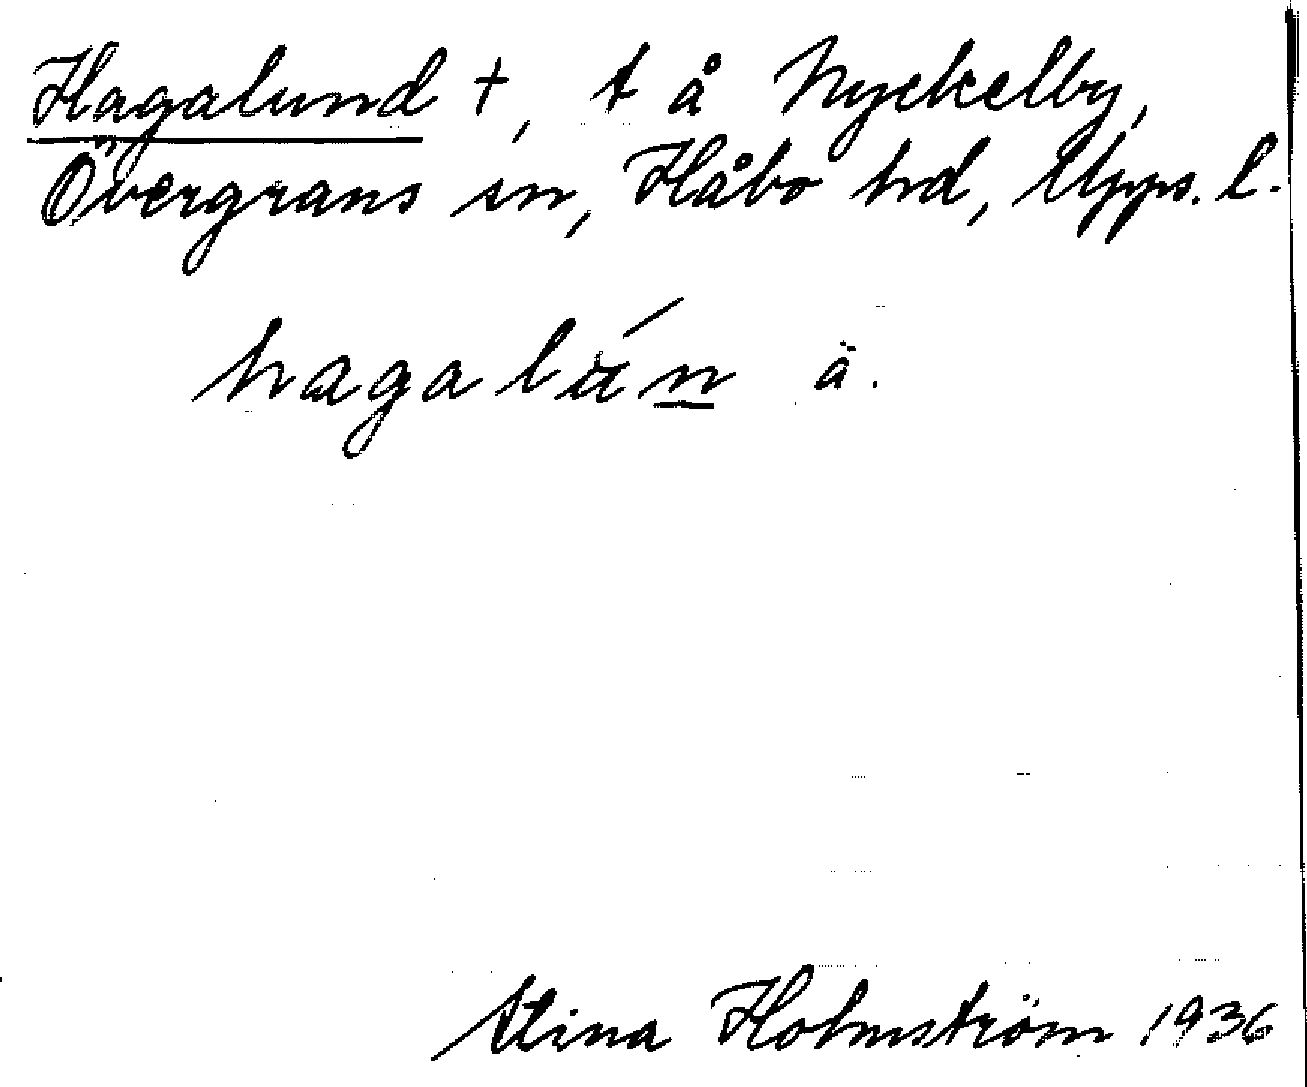 Hagalund +, t å Nyckelby,
Övergrans sn, Håbo hd, Upps. l.
hagalún ä.
Stina Holmström 1936